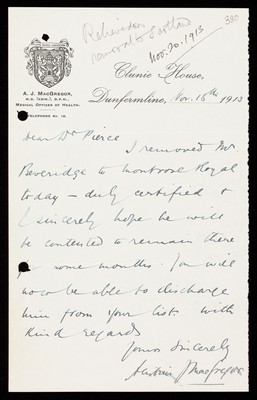 380
removal to Scotland
Nov. 20. 1913
A. J. MacGregor,
M.D. (EDIN.), D.P.H.,
Medical Officer of Health.
Telephone No. 18.
Clunie House,
Dunfermline, Nov. 18th 1913
Dear Dr Pierce
I removed Mr
Beveridge to Montrose Royal
today – duly certified &
I sincerely hope he will
be contented to remain there
for some months. You will
now be able to discharge
him from your list. With
Kind regards
Yours Sincerely
MacGregor